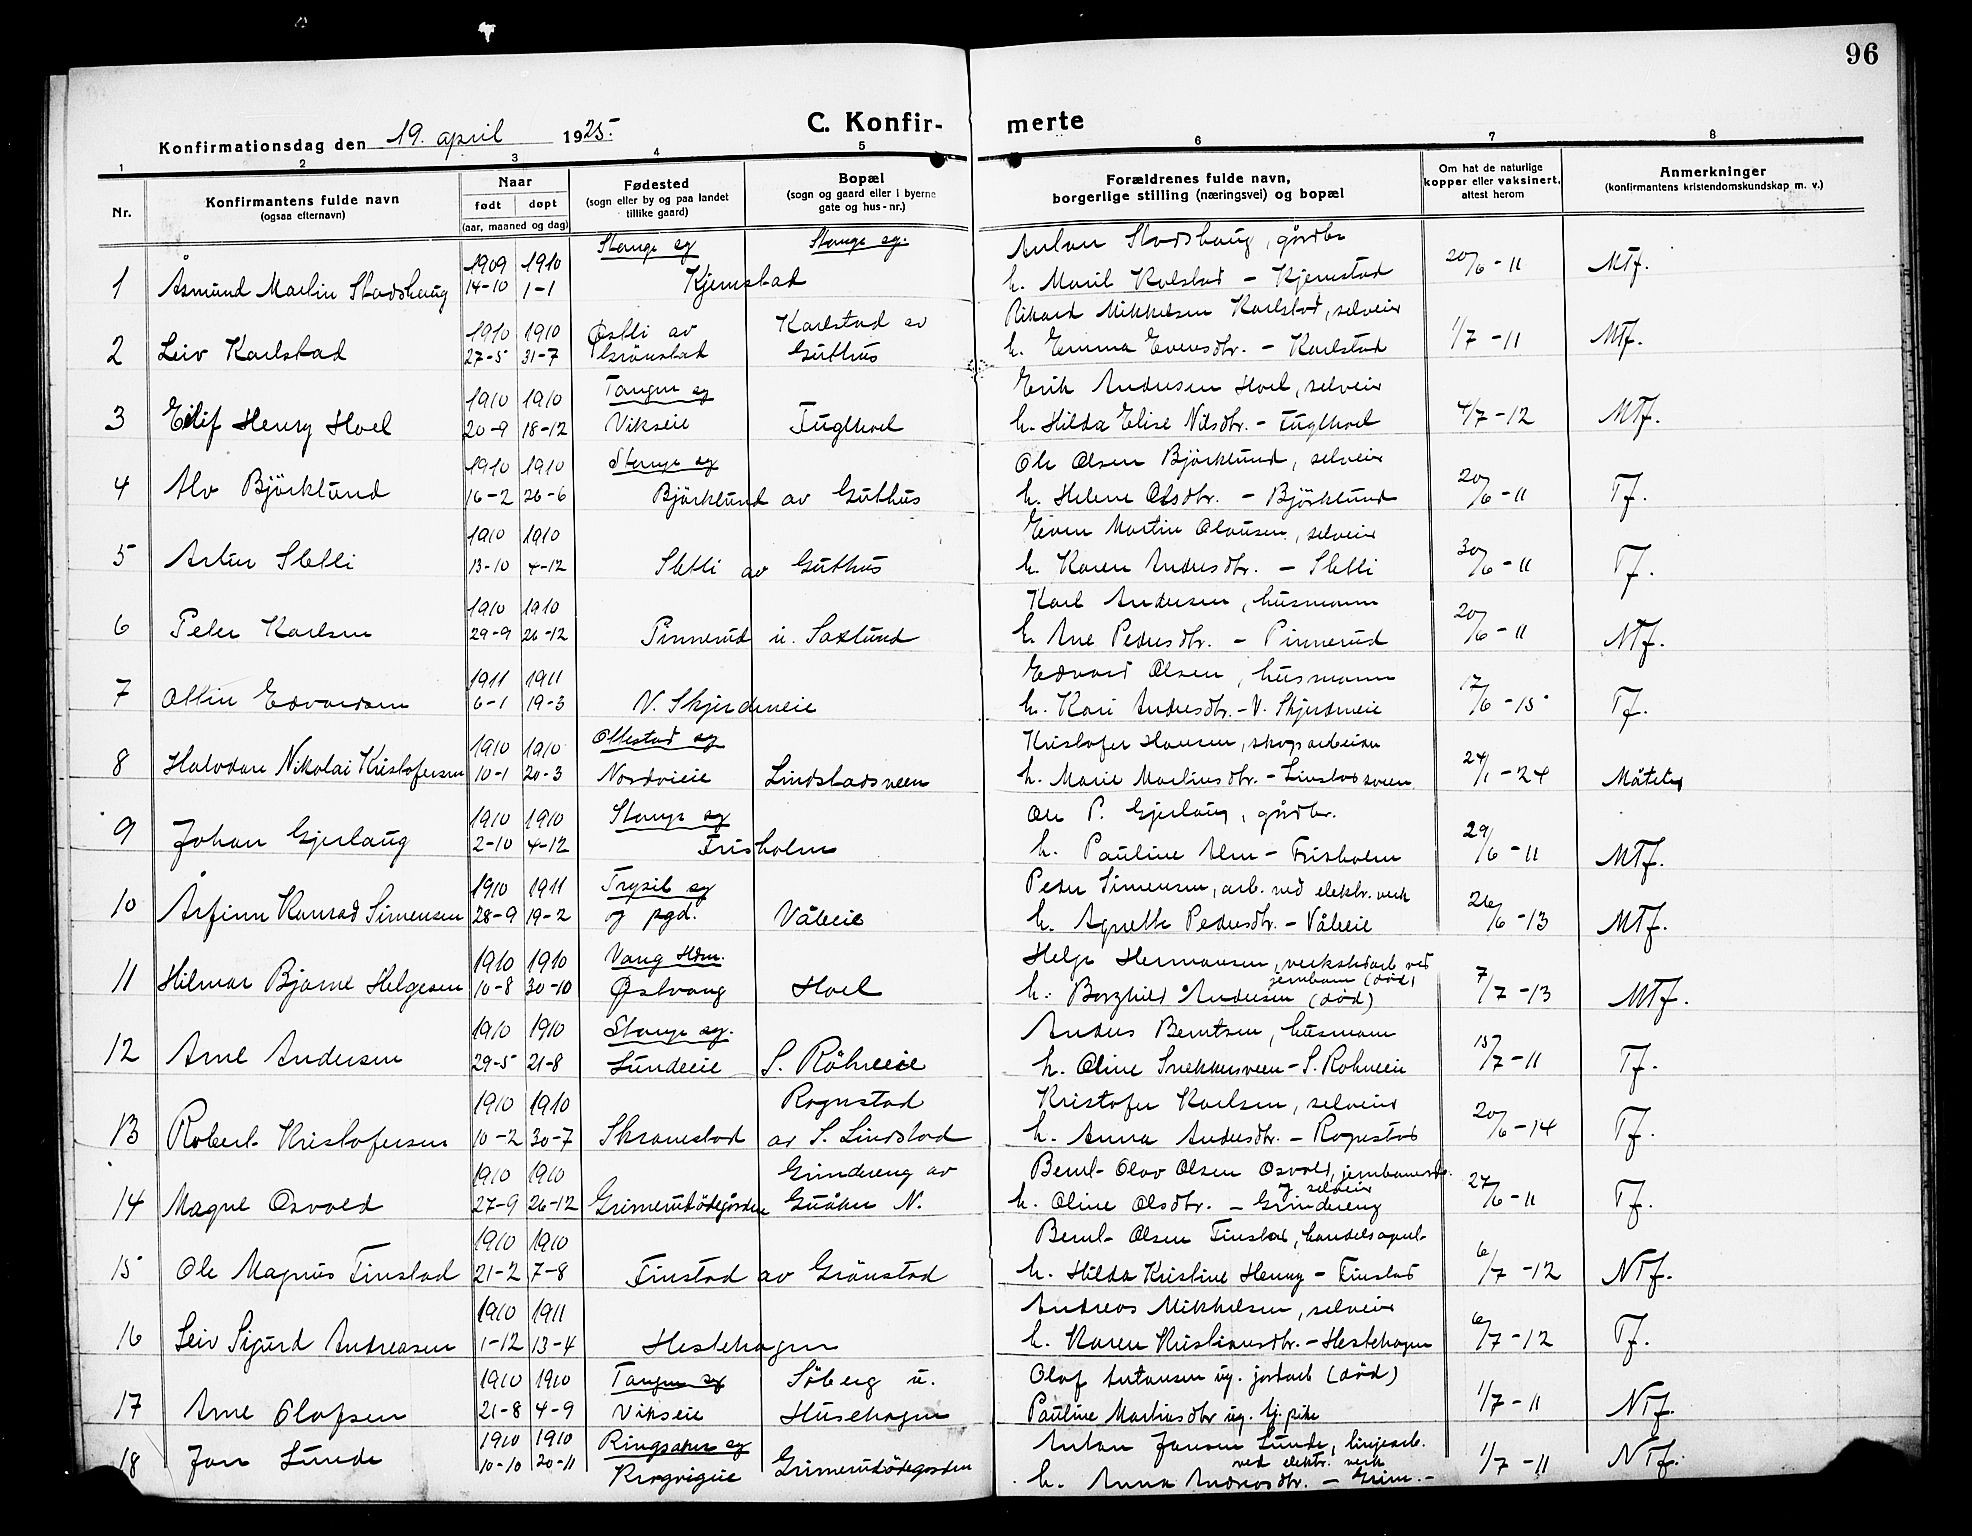 96
Konfirmationsdag den 19. april 1925.
C. Konfirmerte
1 2 3 4 5 6 7 8
Nr.
Konfirmantens fulde navn
(ogsaa efternavn)
Naar
født døpt
(aar, maaned og dag)
Fødested
(sogn eller by og paa landet
tillike gaard)
Bopæl
(sogn og gaard eller i byerne
gate og hus-nr.)
Forældrenes fulde navn,
borgerlige stilling (næringsvei) og bopæl
Om hat de naturlige
kopper eller vaksinert,
attest herom
Anmerkninger
(konfirmantens kristendomskundskap m. v.)
Stange sg Stange sg. Anton Stadshaug, gårdbr
1 Åsmund Martin Stadshaug 1909 14-10 1910 1-1 Kjemstad h. Marit Kolstad - Kjemstad 20/6-11 MTf.
Karlstad av Rikard Mikkelsen Karlstad, selveier
2 Leiv Karlstad 1910 27-5 1910 31-7 Østli av Grönstad Guthus h. Emma Evensdtr. - Karlstad 1/7-11 MTf.
Tangen sg Erik Andersen Hoel, selveier
3 Eilif Henry Hoel 1910 20-9 1910 18-12 Vikseie Fuglhoel h. Hilda Elise Nilsdtr. - Fuglhoel 4/7-12 MTf.
Stange sg Ole Olsen Björklund, selveier
4 Alv Björklund 1910 16-2 1910 26-6 Björklund av Guthus h. Helene Olsdtr. - Björklund 20/6-11 Tf.
Even Martin Olausen, selveier
5 Artur Sletli 1910 13-10 1910 4-12 Sletli av Guthus h. Karen Andersdtr. - Sletli 30/6-11 Tf.
Karl Andersen, husmann
6 Peter Karlsen 1910 29-9 1910 26-12 Pinnerud u. Saxlund h. Ane Pedersdtr. - Pinnerud 20/6-11 NTf.
Edvard Olsen, husmann
7 Ottin Edvardsen 1911 6-1 1911 19-3 V. Skjerdeneie h. Kari Andersdtr. - V. Skjerdeneie 17/6-15 Tf.
Ottestad sg Kristofer Hansen, skogsarbeider
8 Halvdan Nikolai Kristofersen 1910 10-1 1910 20-3 Nordvieie Lindstadsveen h. Marie Martinsdtr. - Linstadsveen 24/1-24 Måtelig
Stange sg Ole P. Gjerlaug, gårdbr.
9 Johan Gjerlaug 1910 2-10 1910 4-12 Frisholm h. Pauline Alm - Frisholm 29/6-11 MTf.
Trysil sg Peder Simensen, arb. ved elektr. verk
10 Arfinn Konrad Simensen 1910 28-9 1911 19-2 og pgd. Våleie h. Agnethe Pedersdtr. - Våleie 26/6-13 MTf.
Vang Hdm. Helge Hermansen, verkstedarb ved
jernbanen (död)
11 Hilmar Bjarne Helgesen 1910 10-8 1910 30-10 Østvang Hoel h. Borghild Andersen (död) 7/7-13 MTf.
Stange sg. Anders Berntsen, husmann
12 Arne Andersen 1910 29-5 1910 21-8 Lundeeie S. Röhneeie h. Oline Snekkersveen - S. Rohneeie 15/7-11 Tf.
Rognstad Kristofer Karlsen, selveier
13 Robert Kristofersen 1910 10-2 1910 30-7 Skramstad av S. Lindstad h. Anna Andersdtr. - Rognstad 20/6-14 Tf.
Grindereng av Bernt Olav Olsen Osvold, jernbanearb.
og selveier
14 Magne Osvold 1910 27-9 1910 26-12 Grimerudödegården Guåker N. h. Oline Olsdtr. - Grindereng 27/6-11 Tf.
Bernt Olsen Finstad, handelsagent
15 Ole Magnus Finstad 1910 21-2 1910 7-8 Finstad av Grönstad h. Hilda Kristine Henny - Finstad 6/7-12 NTf.
Andreas Mikkelsen, selveier
16 Leiv Sigurd Andreasen 1910 1-12 1911 13-4 Hestehagen h. Karen Kristiansdtr. - Hestehagen 6/7-12 Tf.
Tangen sg Söberg u. Olaf Antonsen ug. jordarb (död)
17 Arne Olafsen 1910 21-8 1910 4-9 Vikseie Husehagen Pauline Martinsdtr ug. tj.pike 1/7-11 NTf.
Ringsaker sg Anton Jansen Lunde, linjearb.
ved elektr. verk
18 Jan Lunde 1910 10-10 1910 20-11 Grimerudödegården h. Anna Andreasdtr. - Grim.- 1/7-11 NTf.